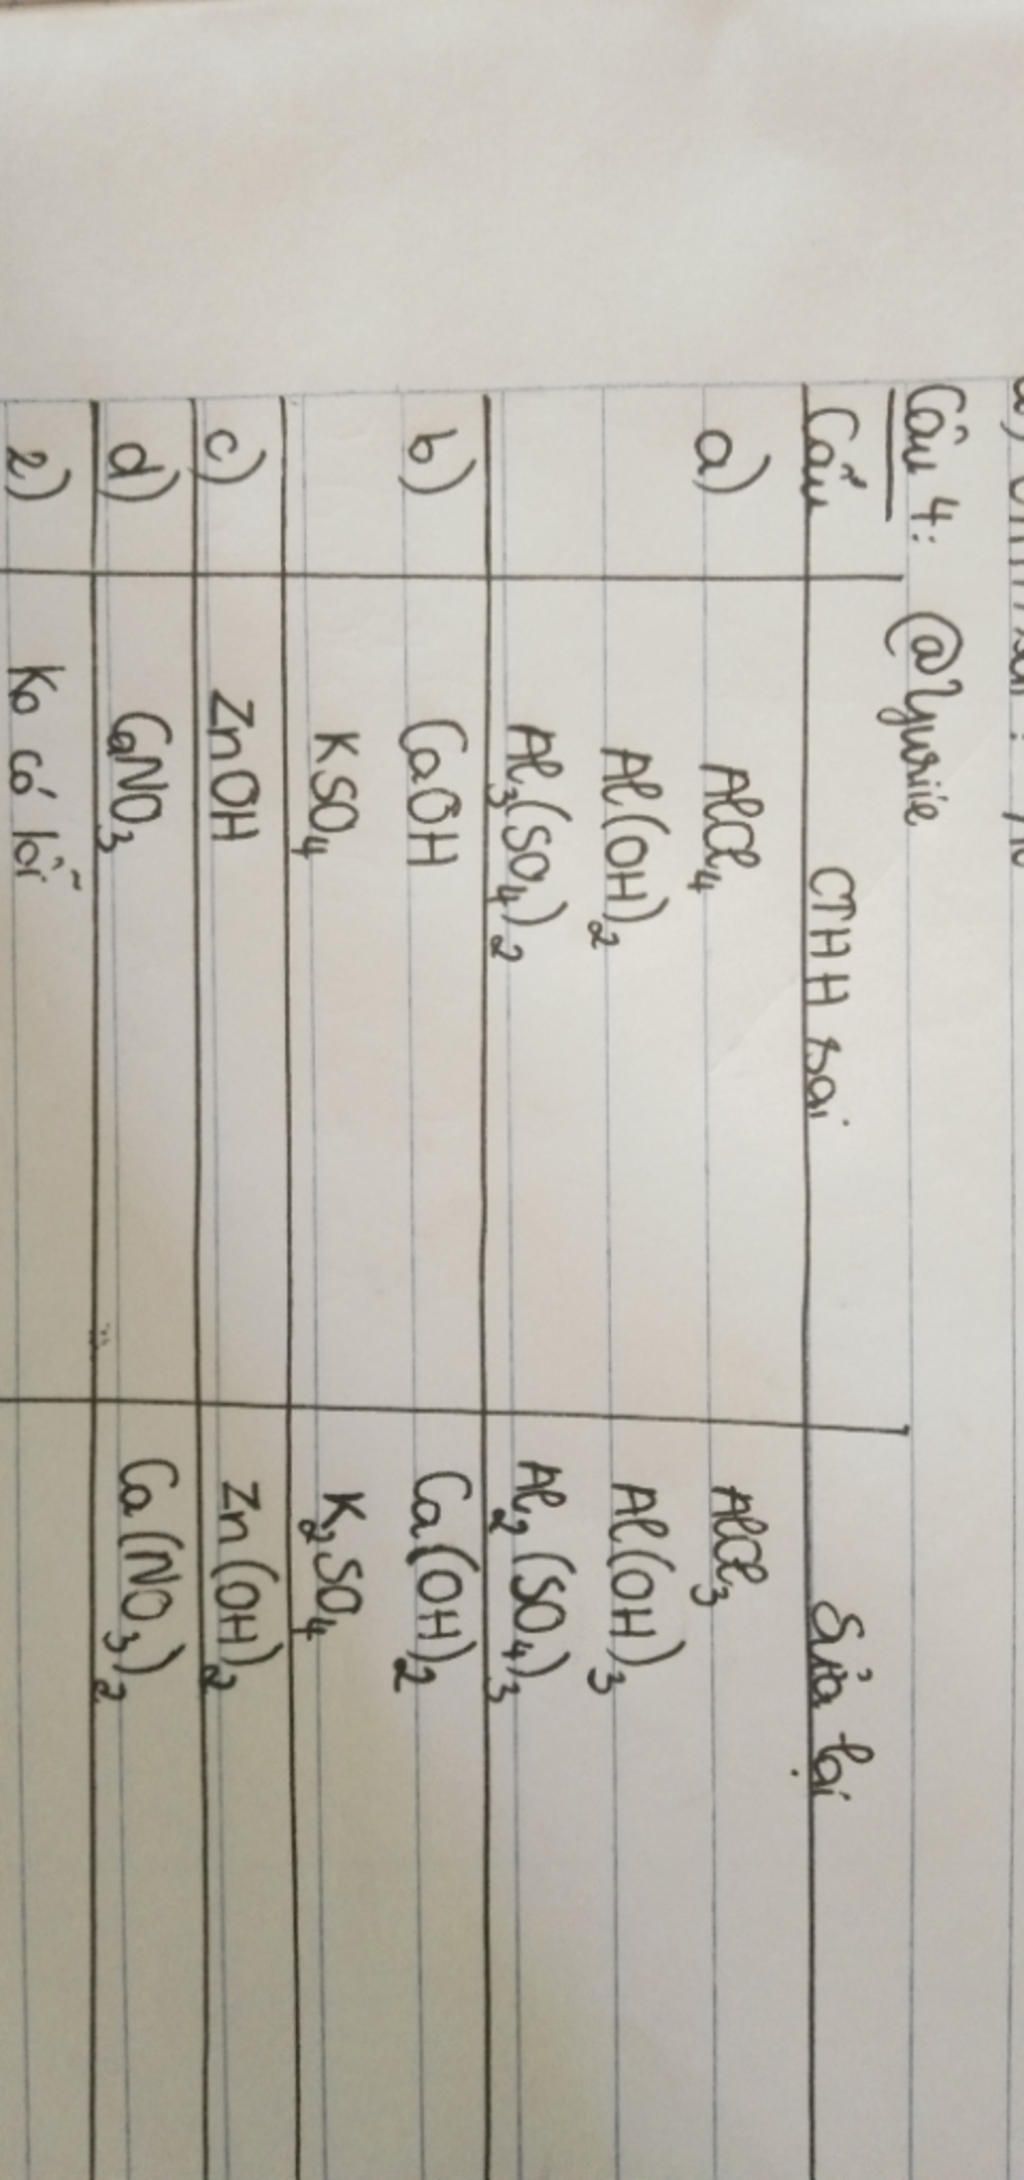 Câu 4: @Yuriie
Câu CTHH sai Sửa lại
a) AlCl₄ AlCl₃
Al(OH)₂ Al(OH)₃
Al₃(SO₄)₂ Al₂(SO₄)₃
b) CaOH Ca(OH)₂
KSO₄ K₂SO₄
c) ZnOH Zn(OH)₂
d) CaNO₃ Ca(NO₃)₂
2) Ko có lỗi